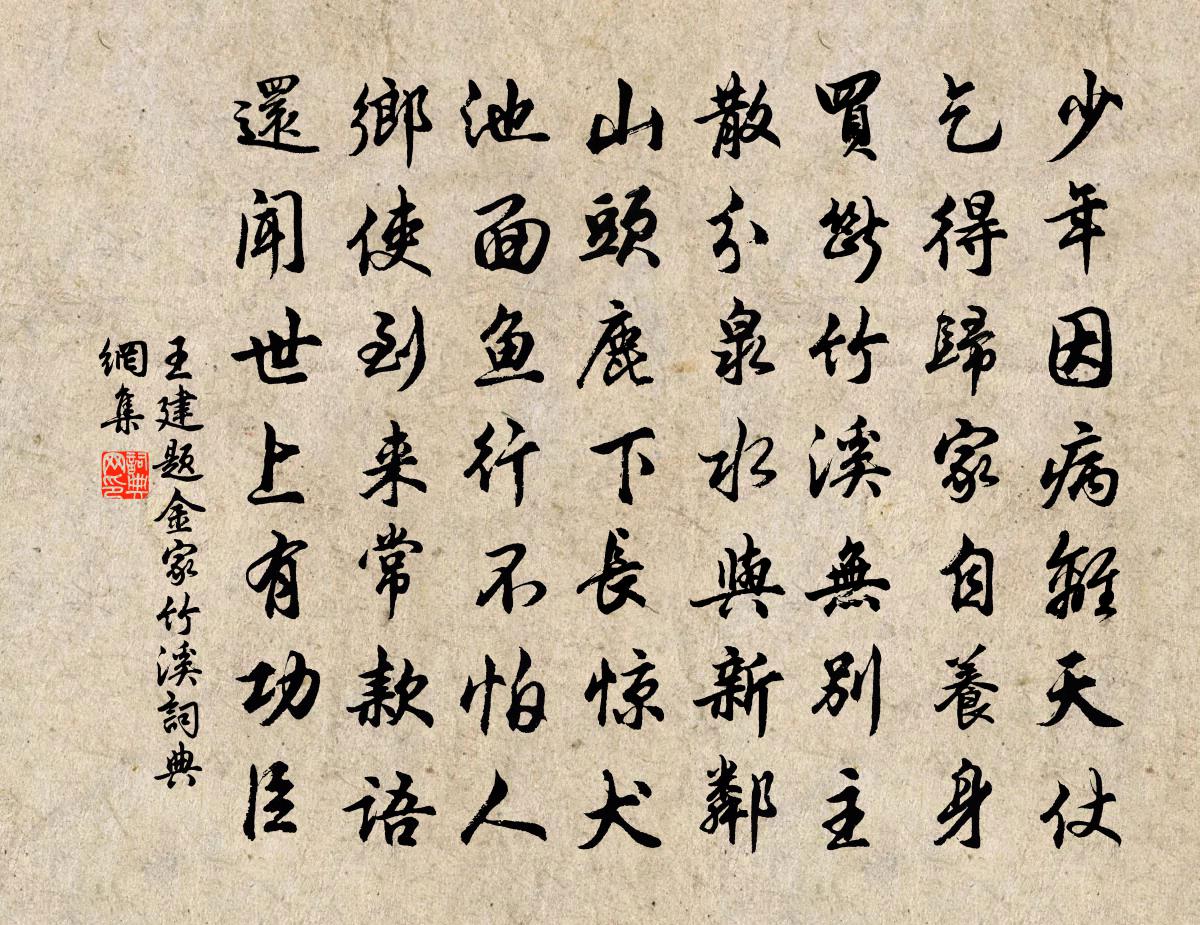 少年因病離天仗
乞得歸家自養身
買斷竹溪無別主
散分泉水與新鄰
山頭鹿下長惊犬
池面魚行不怕人
鄉使到来常款語
還聞世上有功臣
王建題金家竹溪詞典
網集
詞典
网印